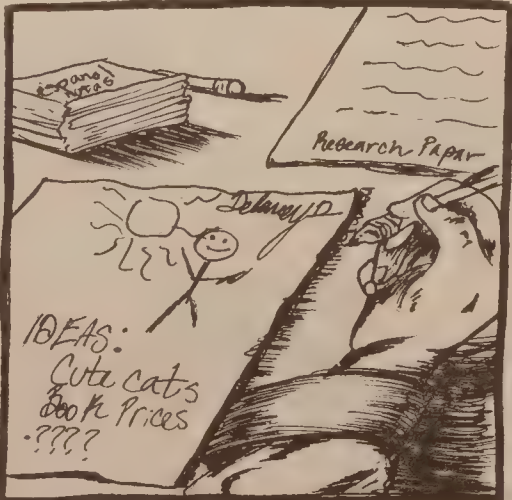 español
notas
Research Papar
Delaney D
IDEAS:
Cute cats
Book Prices
????